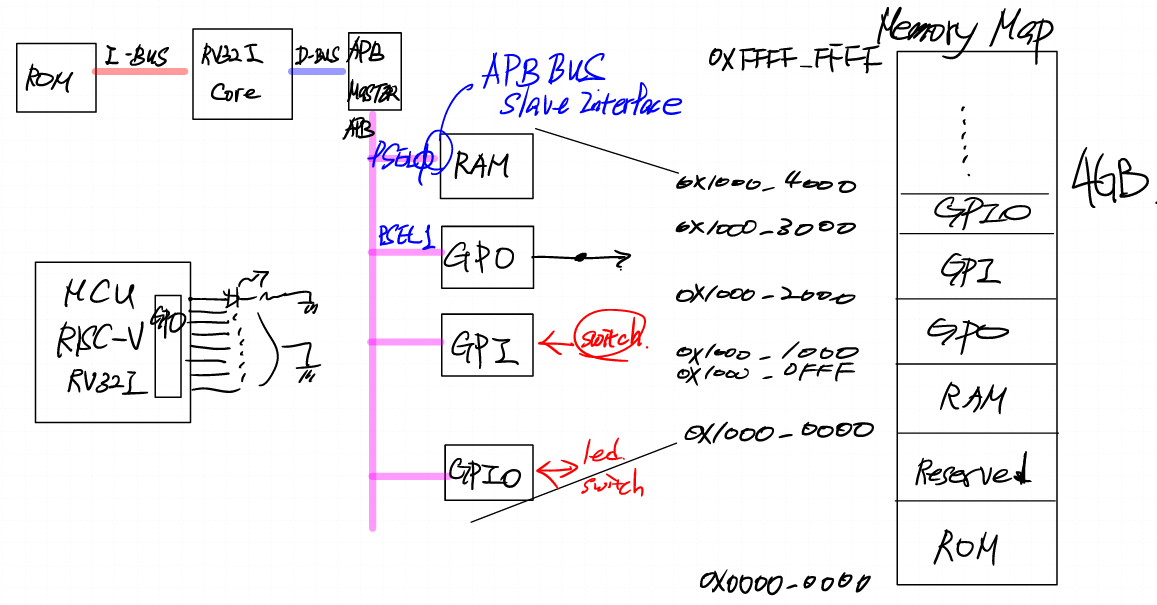 Memory Map
0XFFFF_FFFF
ROM
I-BUS
RV32I
Core
D-BUS
APB
MASTER
APB
APB BUS
Slave Interface
PSEL0
RAM
PSEL1
GPO
GPI
switch.
GPIO
led.
switch
MCU
RISC-V
RV32I
GPO
0x1000_4000
0x1000_3000
0x1000_2000
0x1000_1000
0x1000_0FFF
0x1000_0000
0x0000_0000
GPIO
GPI
GPO
RAM
Reserved
ROM
4GB.